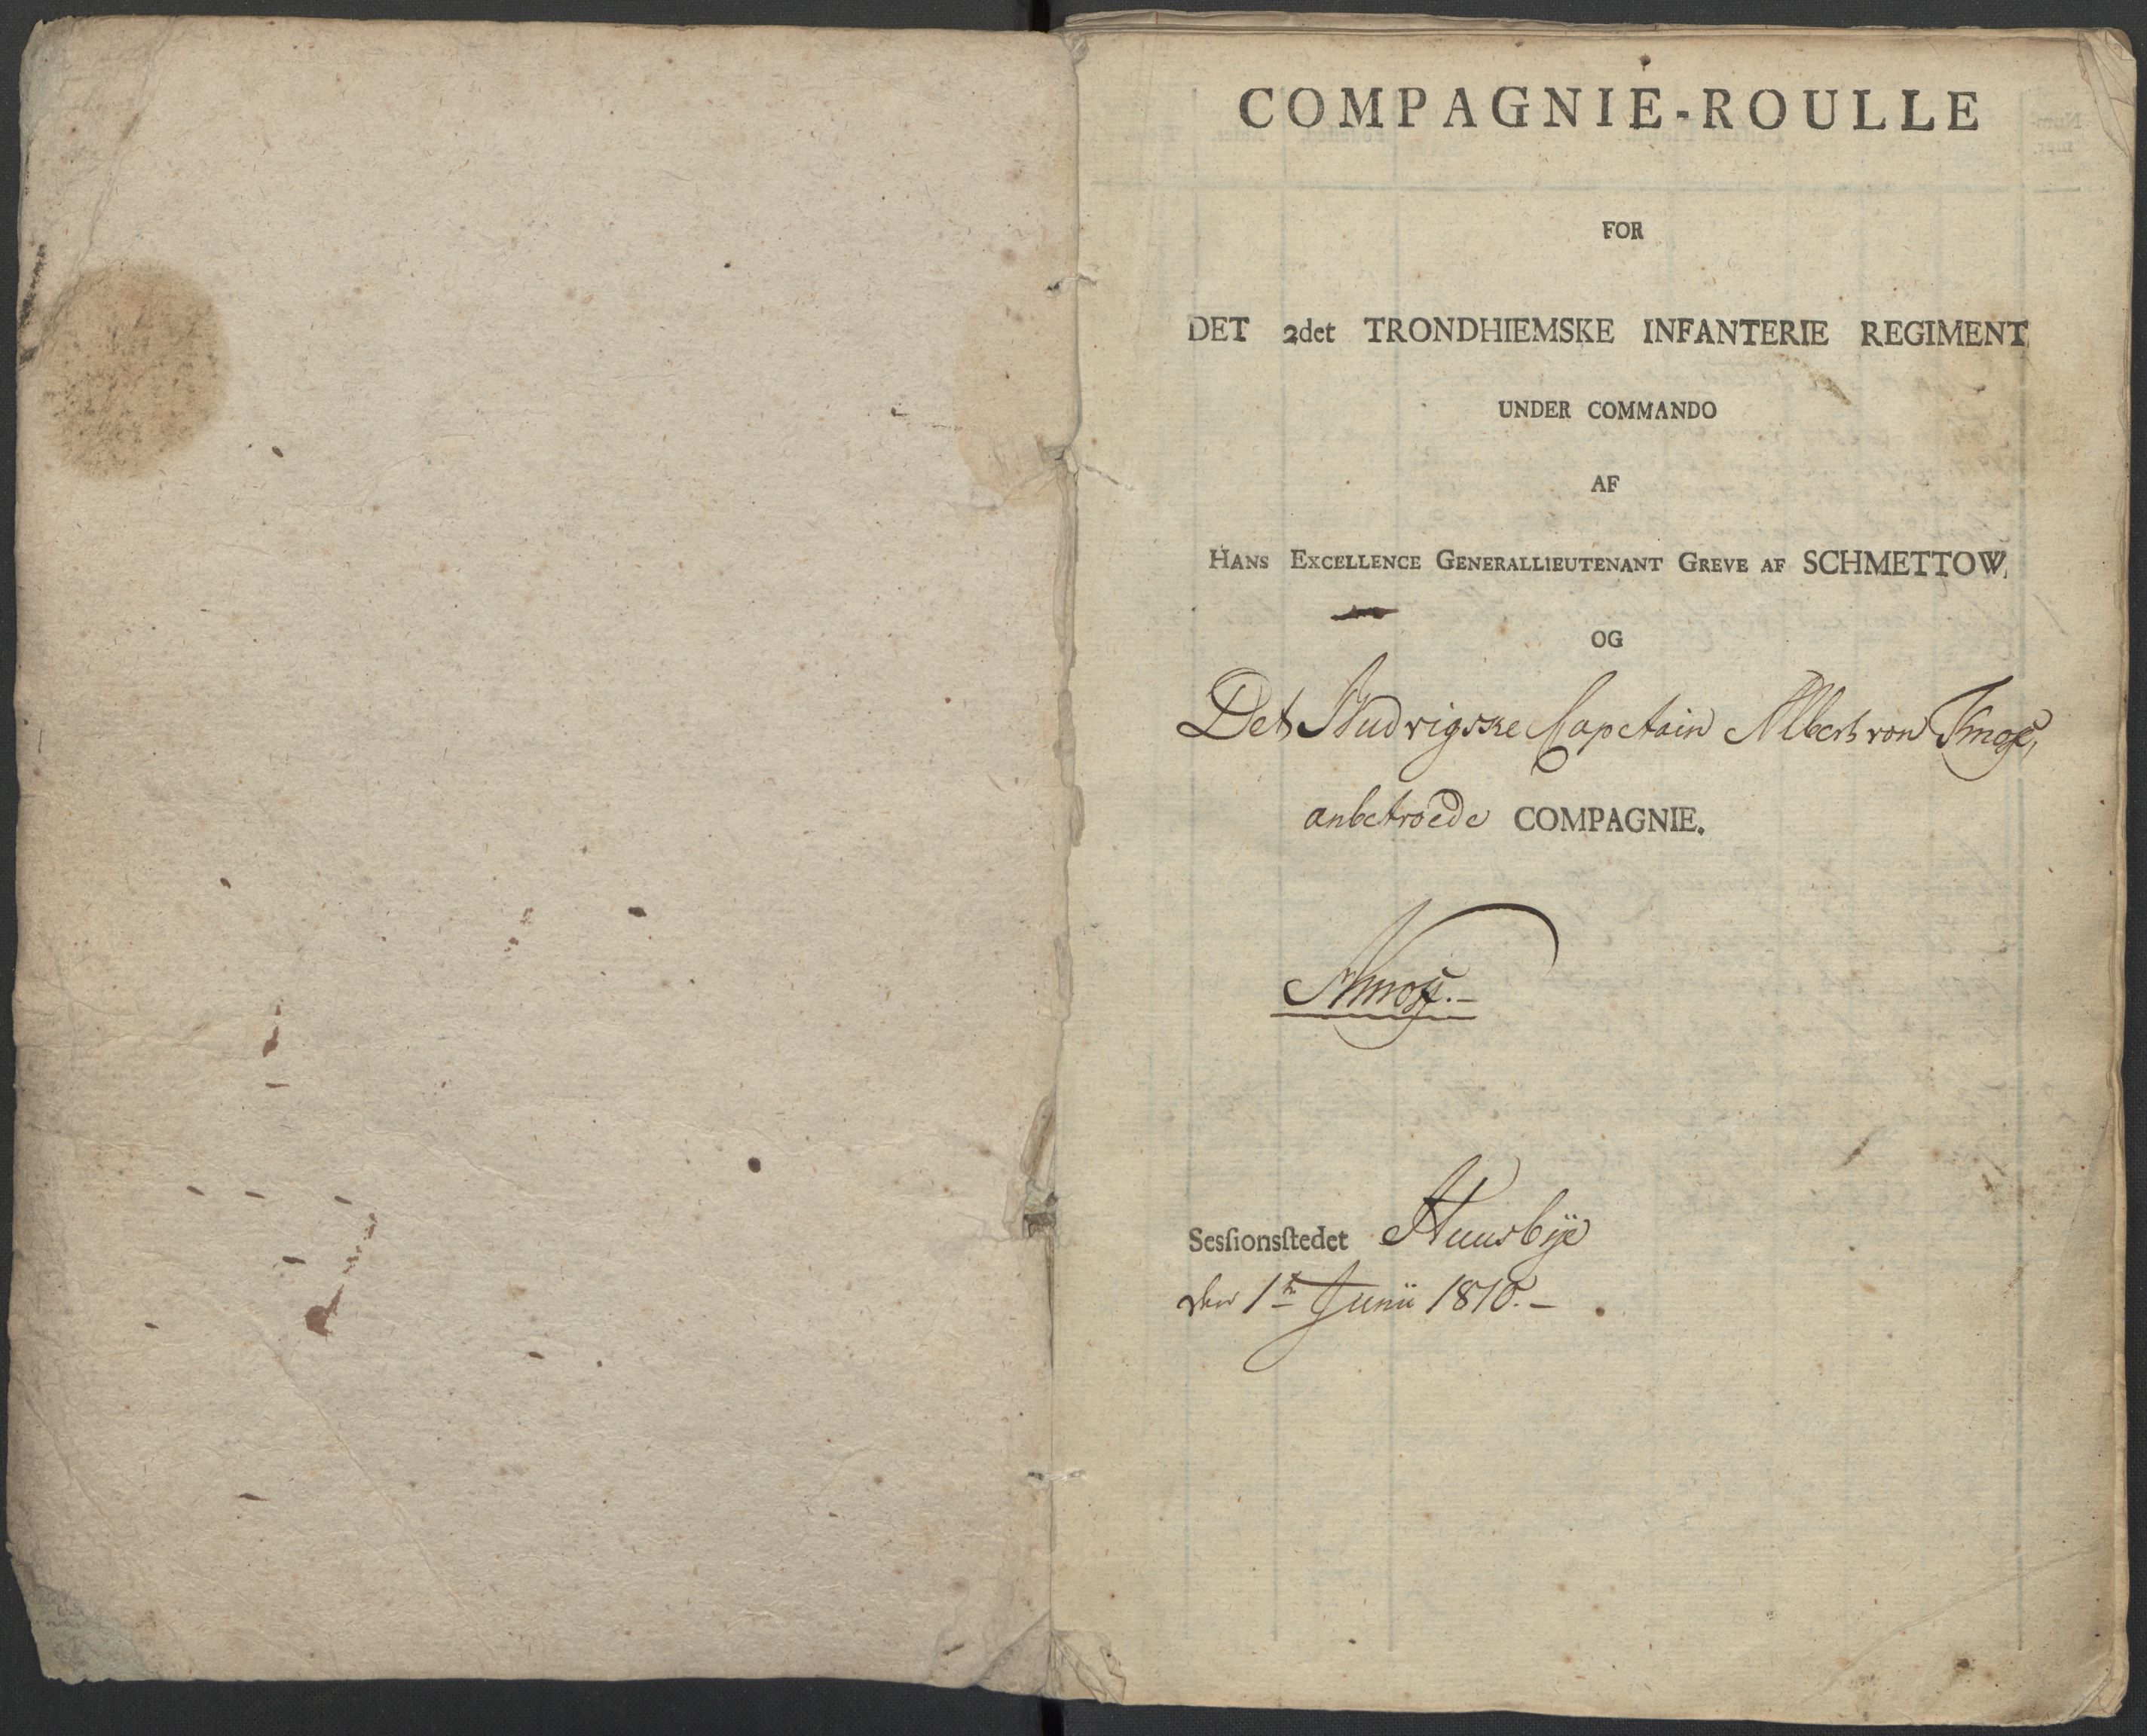 COMPAGNIE-ROULLE
FOR
DET 2det TRONDHIEMSKE INFANTERIE REGIMENT
UNDER COMMANDO
AF
HANS EXCELLENCE GENERALLIEUTENANT GREVE AF SCHMETTOW,
OG
Det Captain Albert von
anbetroede COMPAGNIE.
Sesſionsſtedet Huusbÿe
den 1te Junii 1810.-